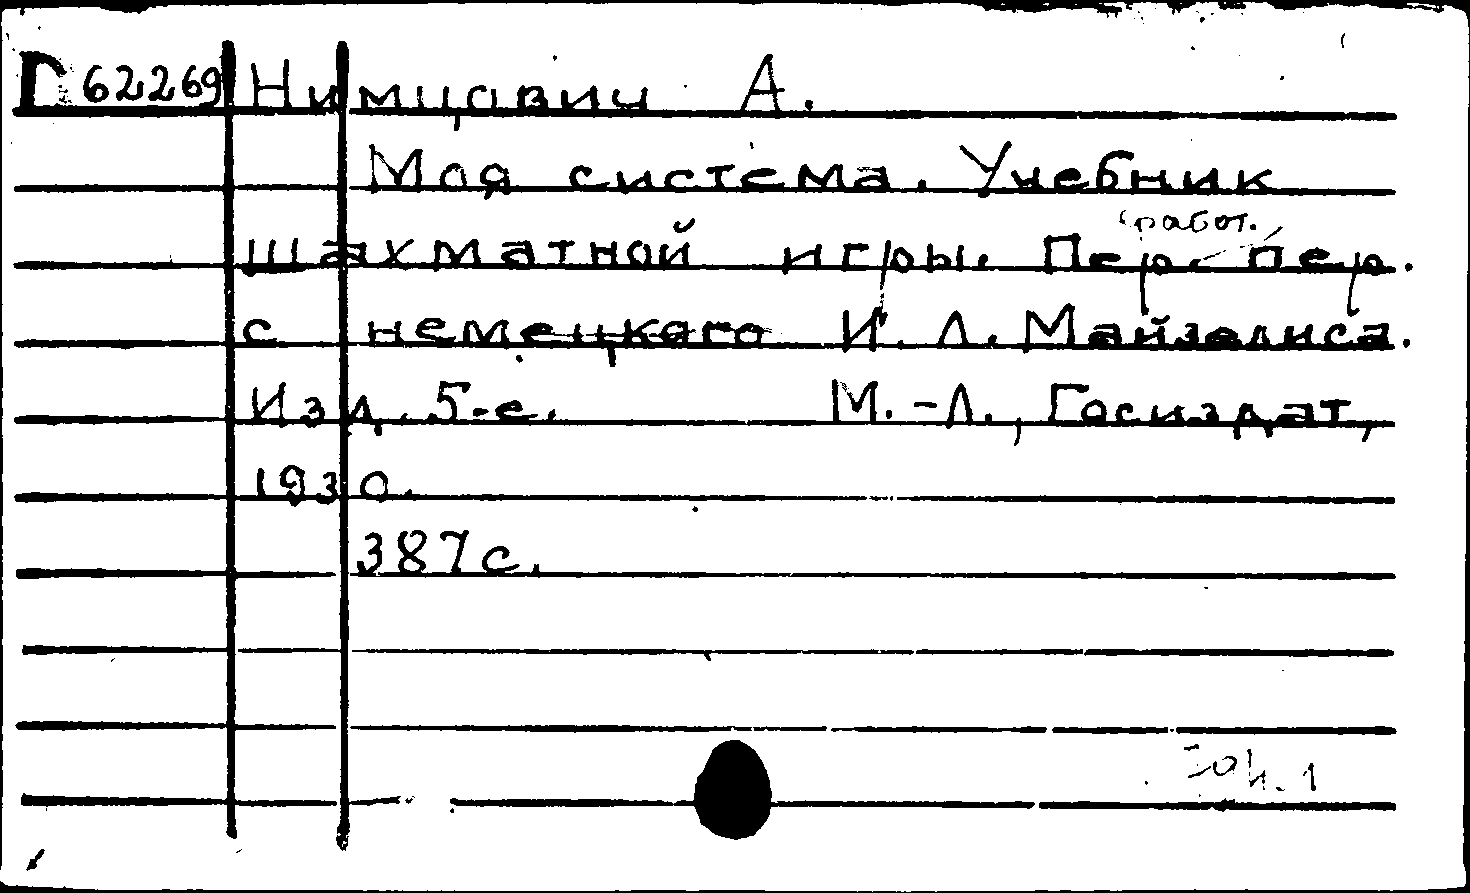 Г 62269 Нимцович А.
Моя система. Учебник
шахматной игры. Перераб. пер.
с немецкого И. Л. Майзелиса.
Изд. 5-е. М.-Л., Госиздат,
1930.
387с.